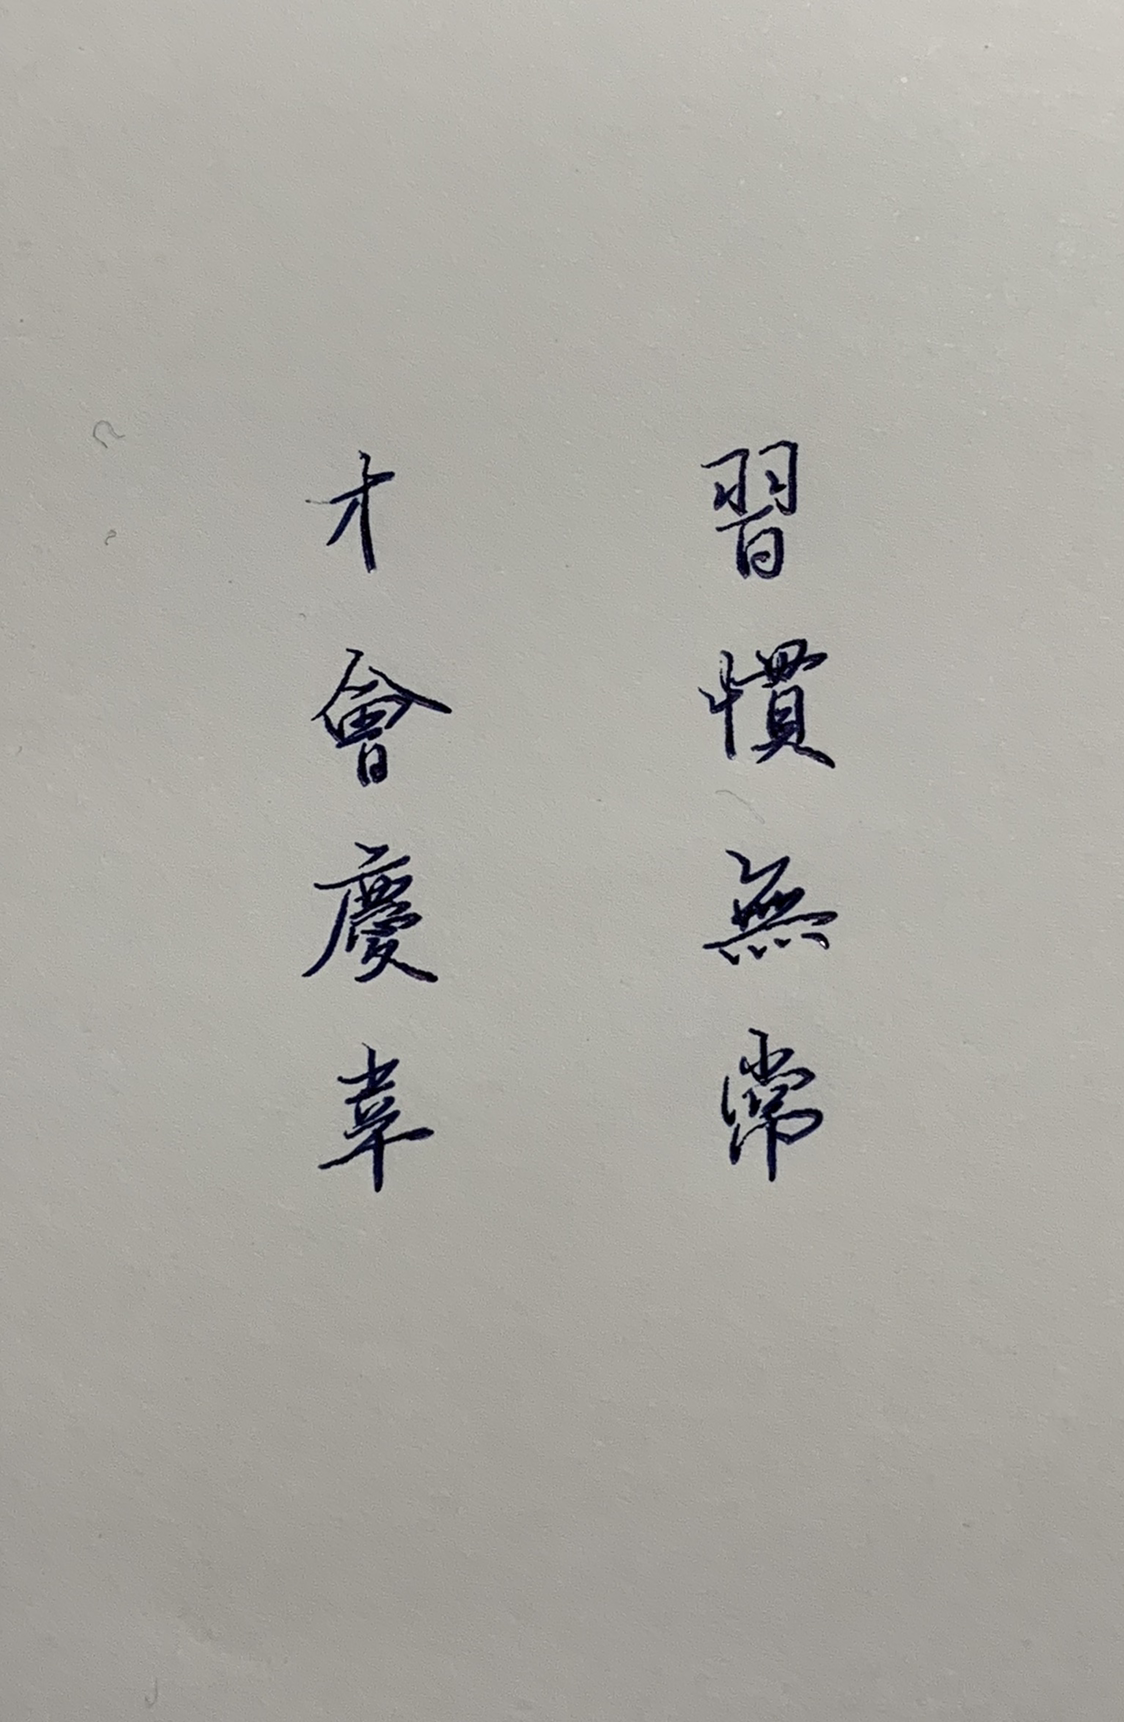 習慣無常
才會慶幸